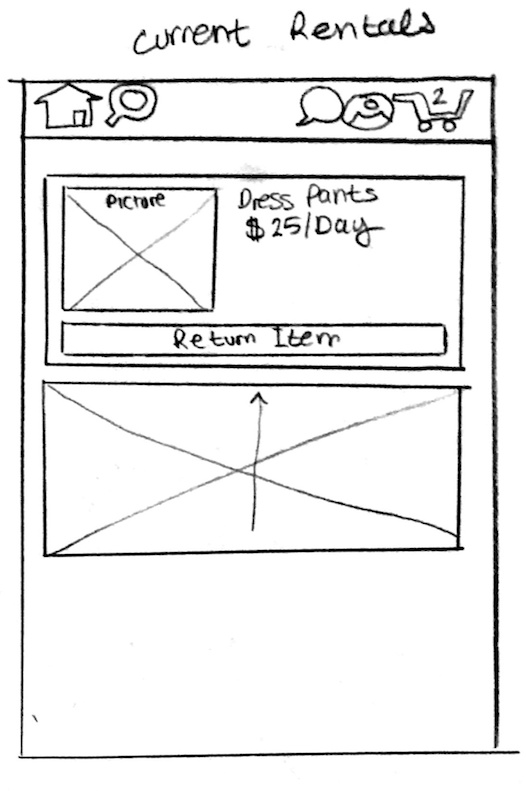 Current Rentals
2
Picture
Dress Pants
$25/Day
Return Item